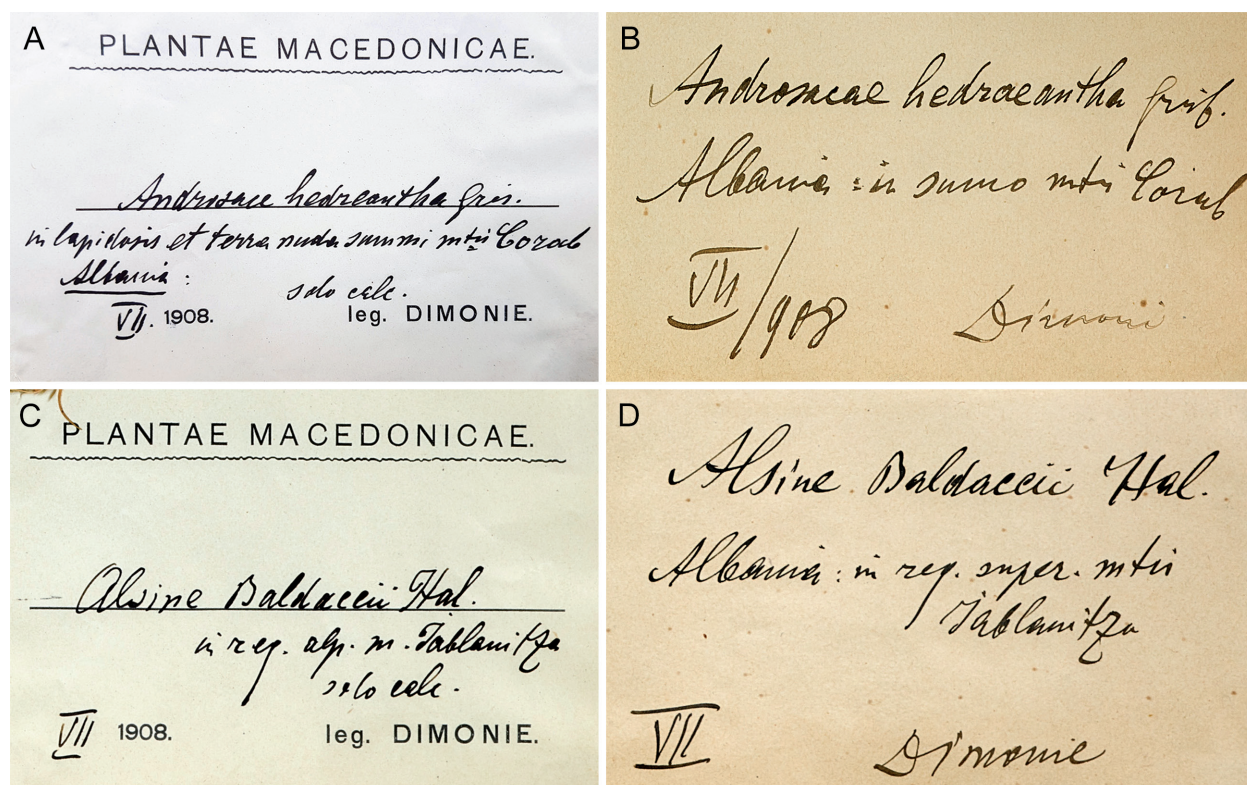 A
PLANTAE MACEDONICAE.
Androsace hedraeantha Gris.
in lapidosis et terra nuda summi mtii Corab
Albania :
solo calc.
VII. 1908. leg. DIMONIE.
B
Androsacae hedraeantha Gris.
Albania : in sumo mtii Corab
VII/908 Dimoni
C
PLANTAE MACEDONICAE.
Alsine Baldaccii Hal.
in reg. alp. m. Jablanitza
solo calc.
VII 1908. leg. DIMONIE.
D
Alsine Baldaccii Hal.
Albania : in reg. super. mtii
Jablanitza
VII Dimonie